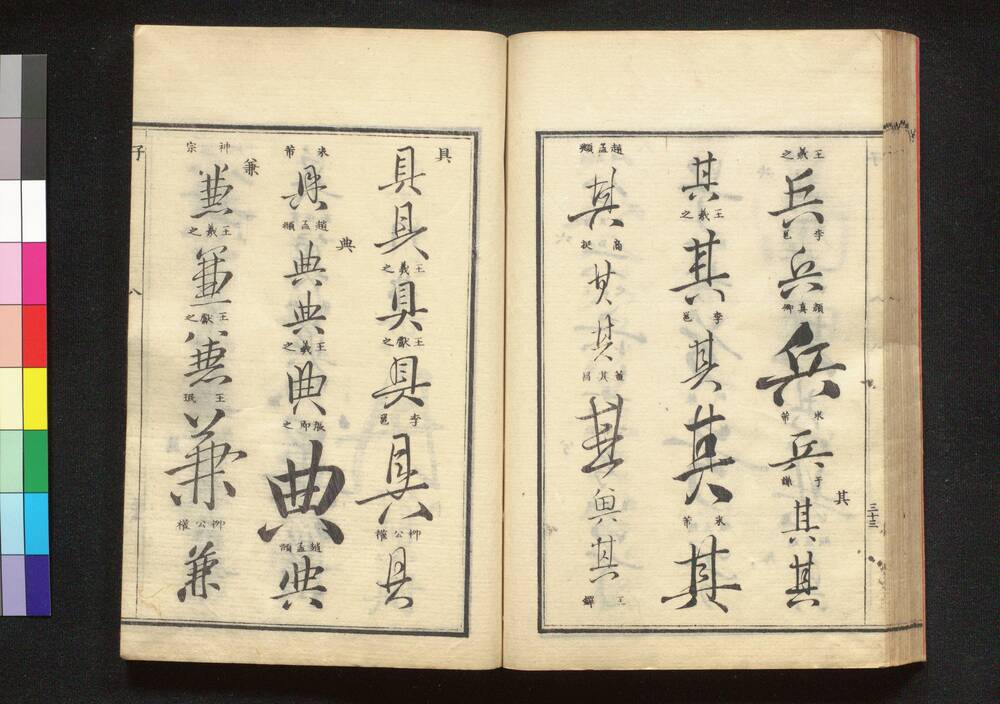 兵 王羲之
兵 李邕
兵 顏真卿
兵 米芾
兵 于謙
其
其
其
其 王羲之
其 李邕
其
其 米芾
其
其 趙孟頫
其
其 董其昌
其
其
其 王鐸
三十三
具
具
具 王羲之
具 王獻之
具 李邕
具 柳公權
具
具 米芾
典 趙孟頫
典
典
典 王羲之
典 張即之
典 趙孟頫
典
兼 神宗
兼
兼 王羲之
兼 王獻之
兼 王珉
兼 柳公權
兼
子
八